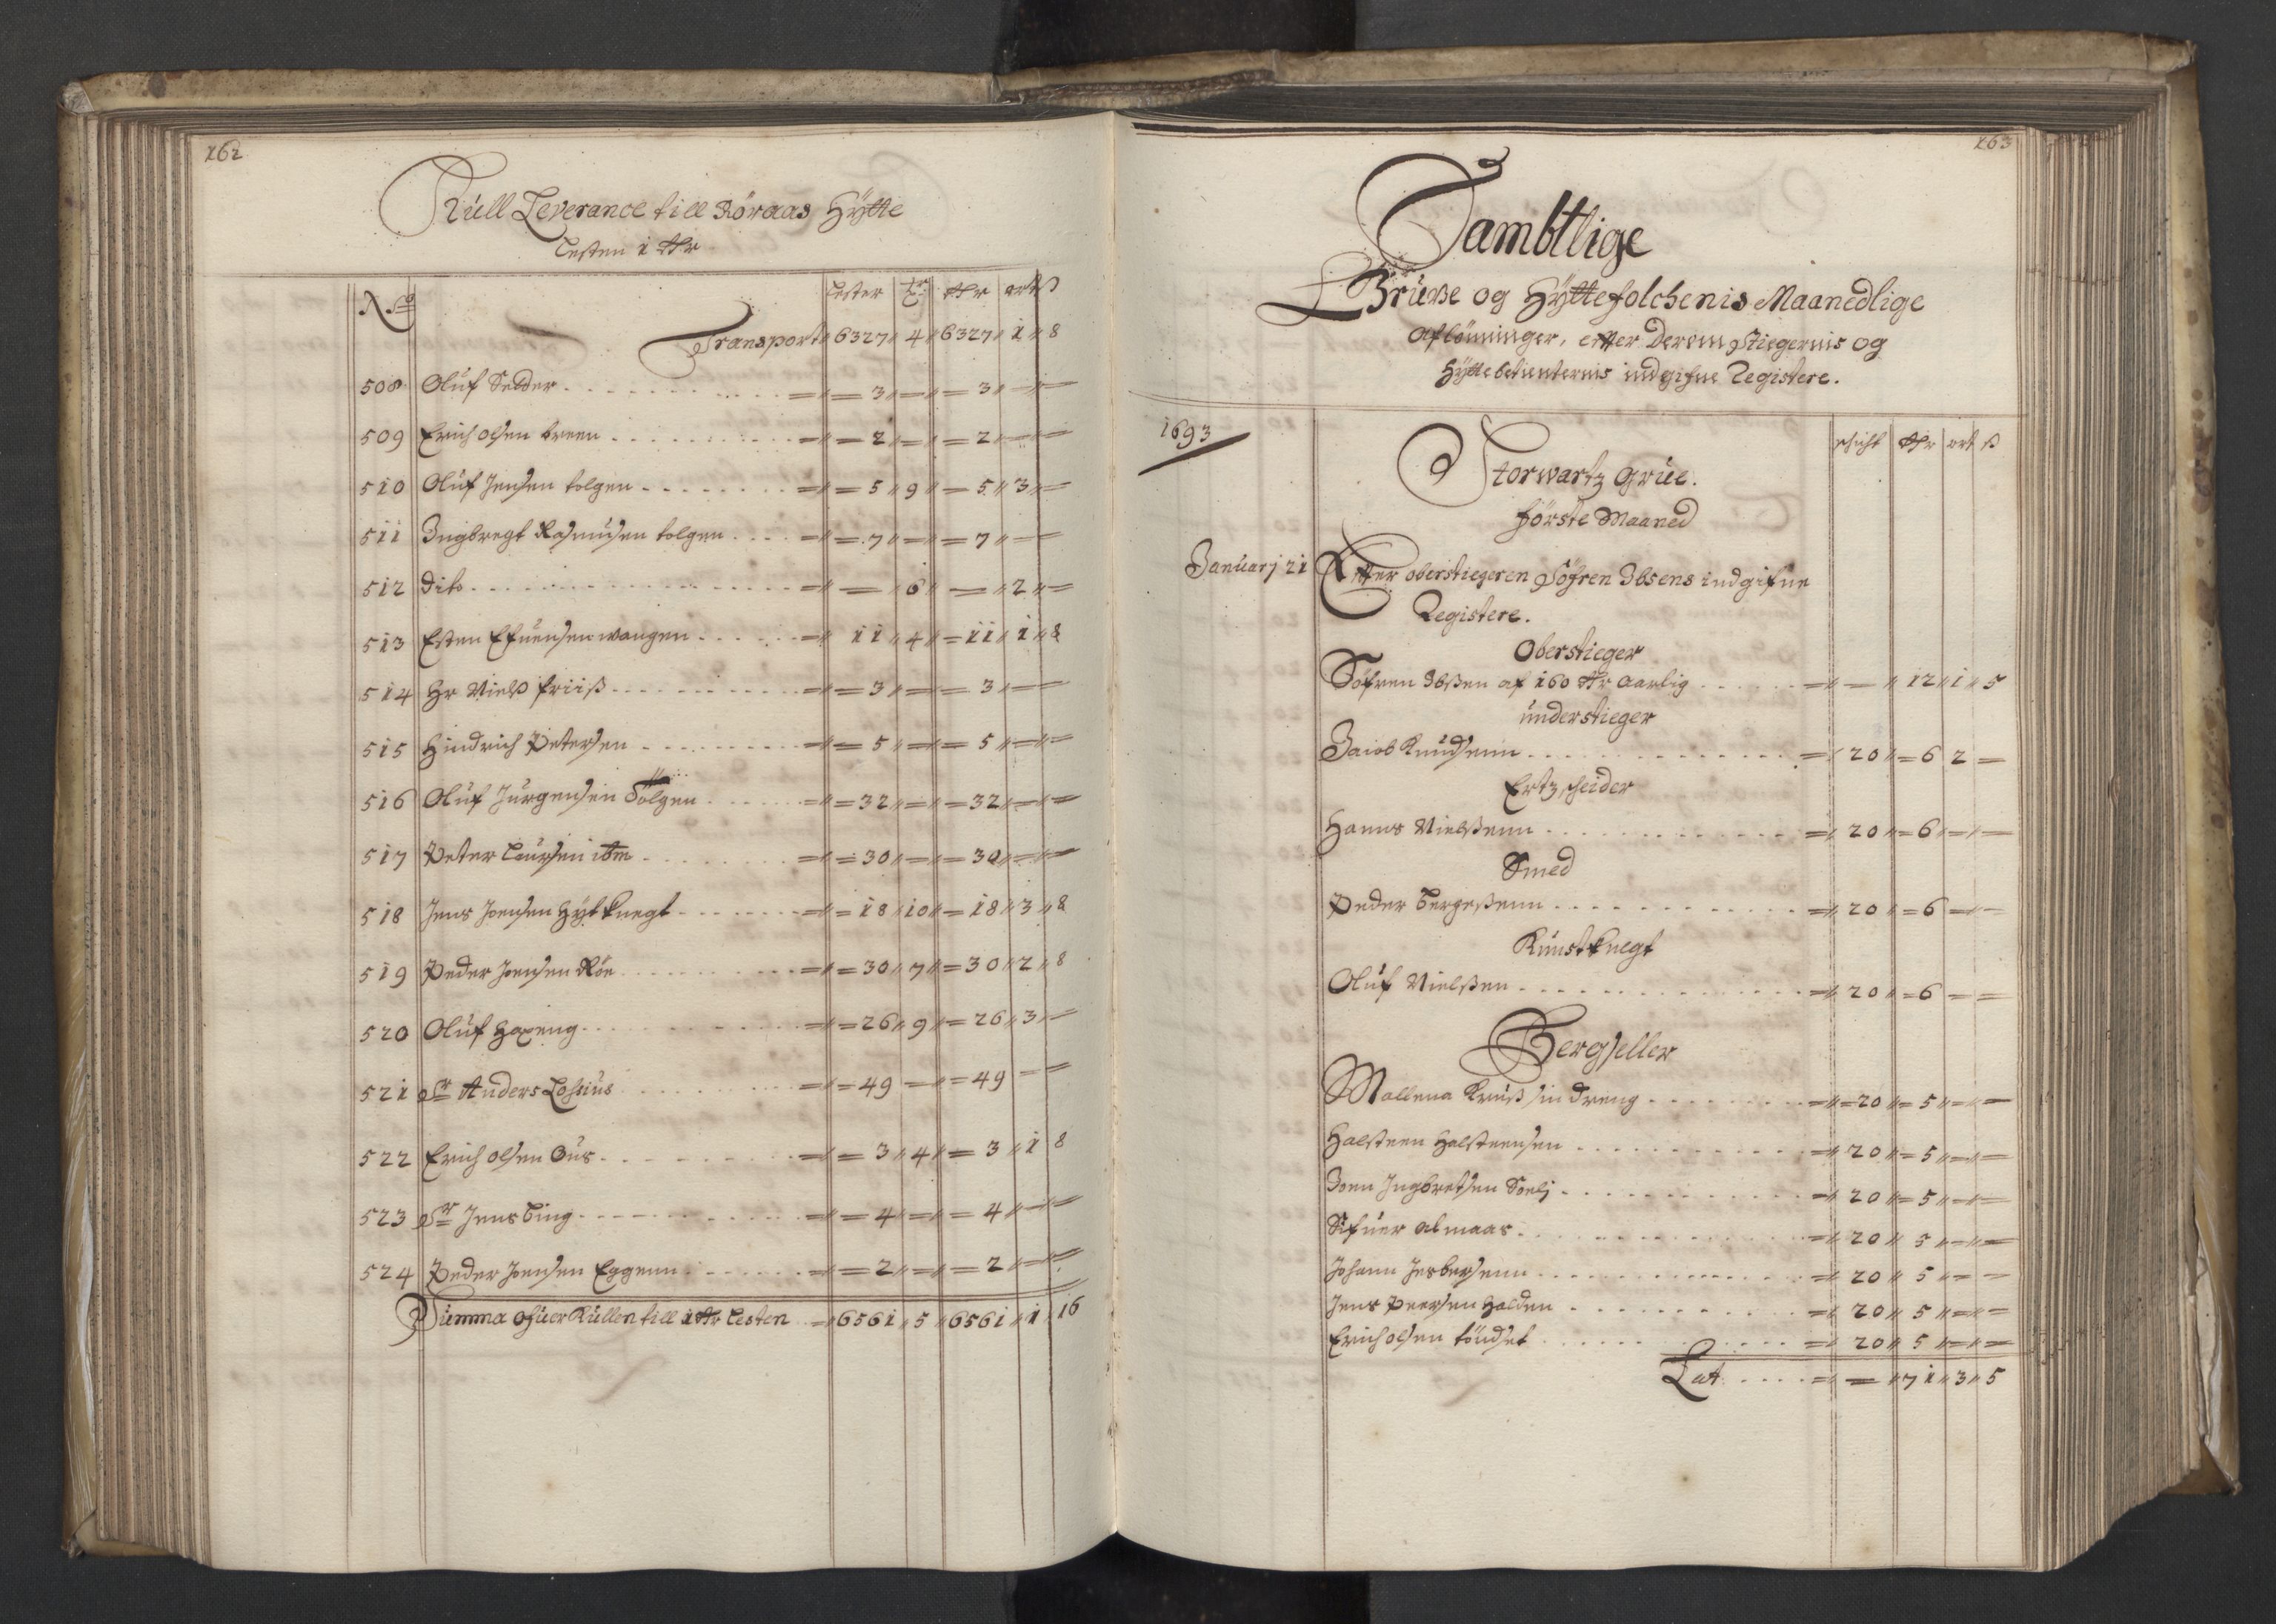 162
Kull Leverance till Röraas Hÿtte
Lesten 1 Rdr
No
Lester Tr Rdr ort ß
Transport 6327 4 6327 1 8
508 Oluf Sedder 3 3
509 Erich olsen breen 2 2
510 Oluf Jensen tolgen 5 9 5 3
511 Ingbregt Rasmusen tolgen 7 7
512 dito 6 2
513 Esten Efuensen wangen 11 4 11 1 8
514 Hr Nielß friiß 3 3
515 Hindrich Petersen 5 5
516 Oluf Jurgensen Tolgen 32 32
517 Peter Laursen ibm 30 30
518 Jens Joensen Hÿt knegt 18 10 18 3 8
519 Peder Joensen Röe 30 7 30 2 8
520 Oluf Haxeng 26 9 26 3
521 Sr Anders Lossius 49 49
522 Erich olsen Ous 3 4 3 1 8
523 Sr Jens bing 4 4
524 Peder Joensen Eggenn 2 2
Summa ofuer Kullen till 1 Rdr Lesten 6561 5 6561 1 16
163
Sambtlige
Gruve og Hÿttefolchenis Maanedlige
Aflönninger, efter Deris Stiegernis og
Hÿttebetienternis indgifne Registere.
1693
schicht Rdr ort ß
Storwartz Grue.
förste Maaned
Januarj 21 Efter oberstiegeren Söfren Ibsens indgifne
Registere.
Oberstieger
Söfren Ibßen af 160 Rdr aarlig 12 1 5
understieger
Jacob Knudsenn 20 6 2
Ertzscheider
Hanns Nielßenn 20 6
Smed
Peder Bergeßenn 20 6
Kunst knegt
Oluf Nielßen 20 6
Bergseller
Mallena Kruß sin dreng 20 5
Halsteen Halsteensen 20 5
Joen Ingbretsen Soelj 20 5
Sifuer Almaas 20 5
Johann Jesbersenn 20 5
Jens Peersen Halden 20 5
Erich olsen töndset 20 5
Lat 71 3 5